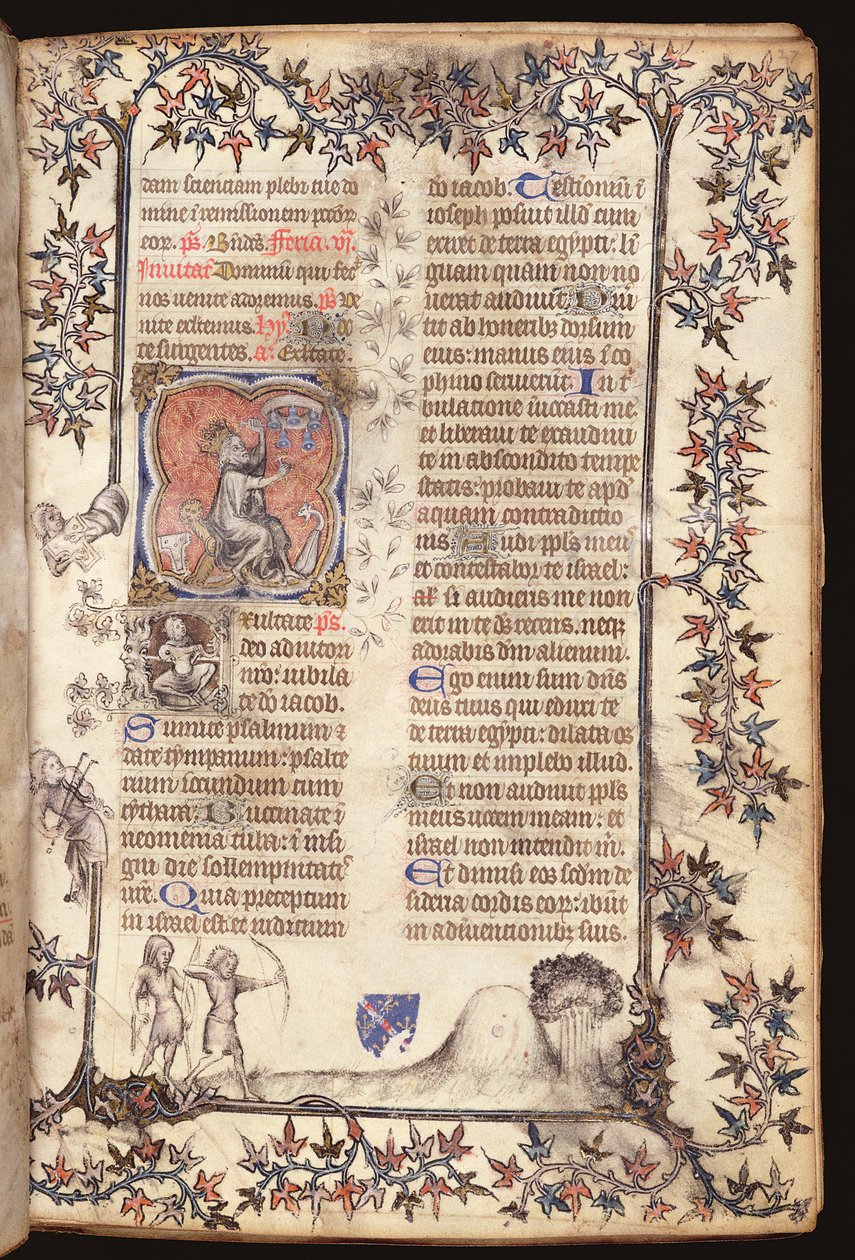 dam scienciam plebi tue do
mine ī remissionem pccōr
eor. ps. Bndc̄s. Feria. vj.
Inuitat̄. Dominū qui fec̄
nos uenite adoremus. ps Ue
nite exltemus. Hȳ. No
te surgentes. a. Exltate.
Exultate ps.
deo adiutori
nr̄o: iubila
te do iacob.
Sumite psalmum ⁊
date tympanum: psalte
rium iocundum cum
cythara. Buccinate ī
neomenia tuba: ī insi
gni die sollempnitatis
ure. Quia preceptum
in israel est: et iudicium
do iacob. Testioniū ī
ioseph posuit illd cum
exiret de terra egypti: li
guam quam non no
uerat audiuit. Diu
tit ab honeribz dorsum
eius: manus eius ī co
phino seruierūt. In tͥ
bulatione īuocasti me
et liberaui te exaudiui
te in abscondito tempe
statis: probaui te apd
aquam contradictio
nis. Audi ppls meus
et contestabor te israel:
si audieris me non
erit in te ds recens. neqz
adorabis dm alienum.
Ego enim sum dn̄s
deus tuus qui eduxi te
de terra egypti: dilata os
tuum et implebo illud.
Et non audiuit ppls
meus uocem meam: et
israel non intendit m̄.
Et dimisi eos scdm de
sideria cordis eor: ibūt
in adīuentionibz suis.